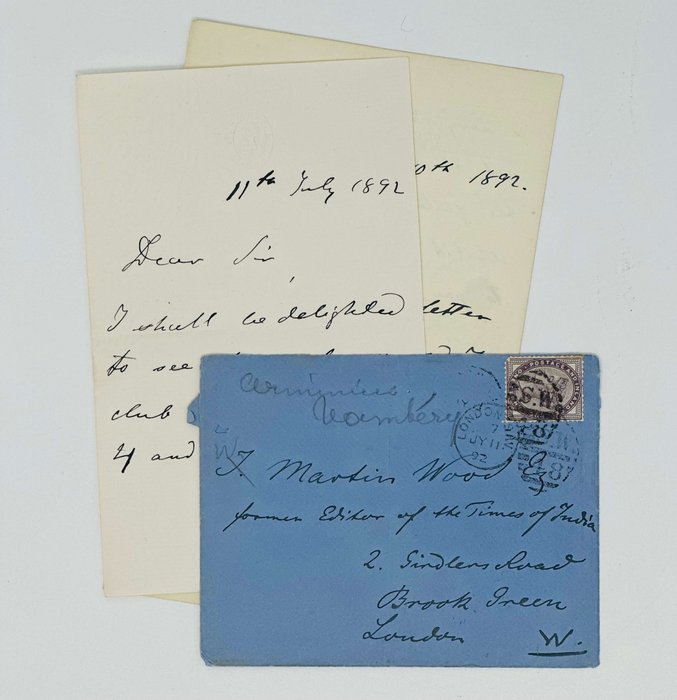 11th July 1892
Dear Sir
I shall be delighted
to see
club
4 and
10th 1892.
letter
Arminius
Vambéry
LONDON
7
JY 11
92
W.S
48
J. Martin Wood Esq
former Editor of the Times of India
2. Girdlers Road
Brook Green
London W.